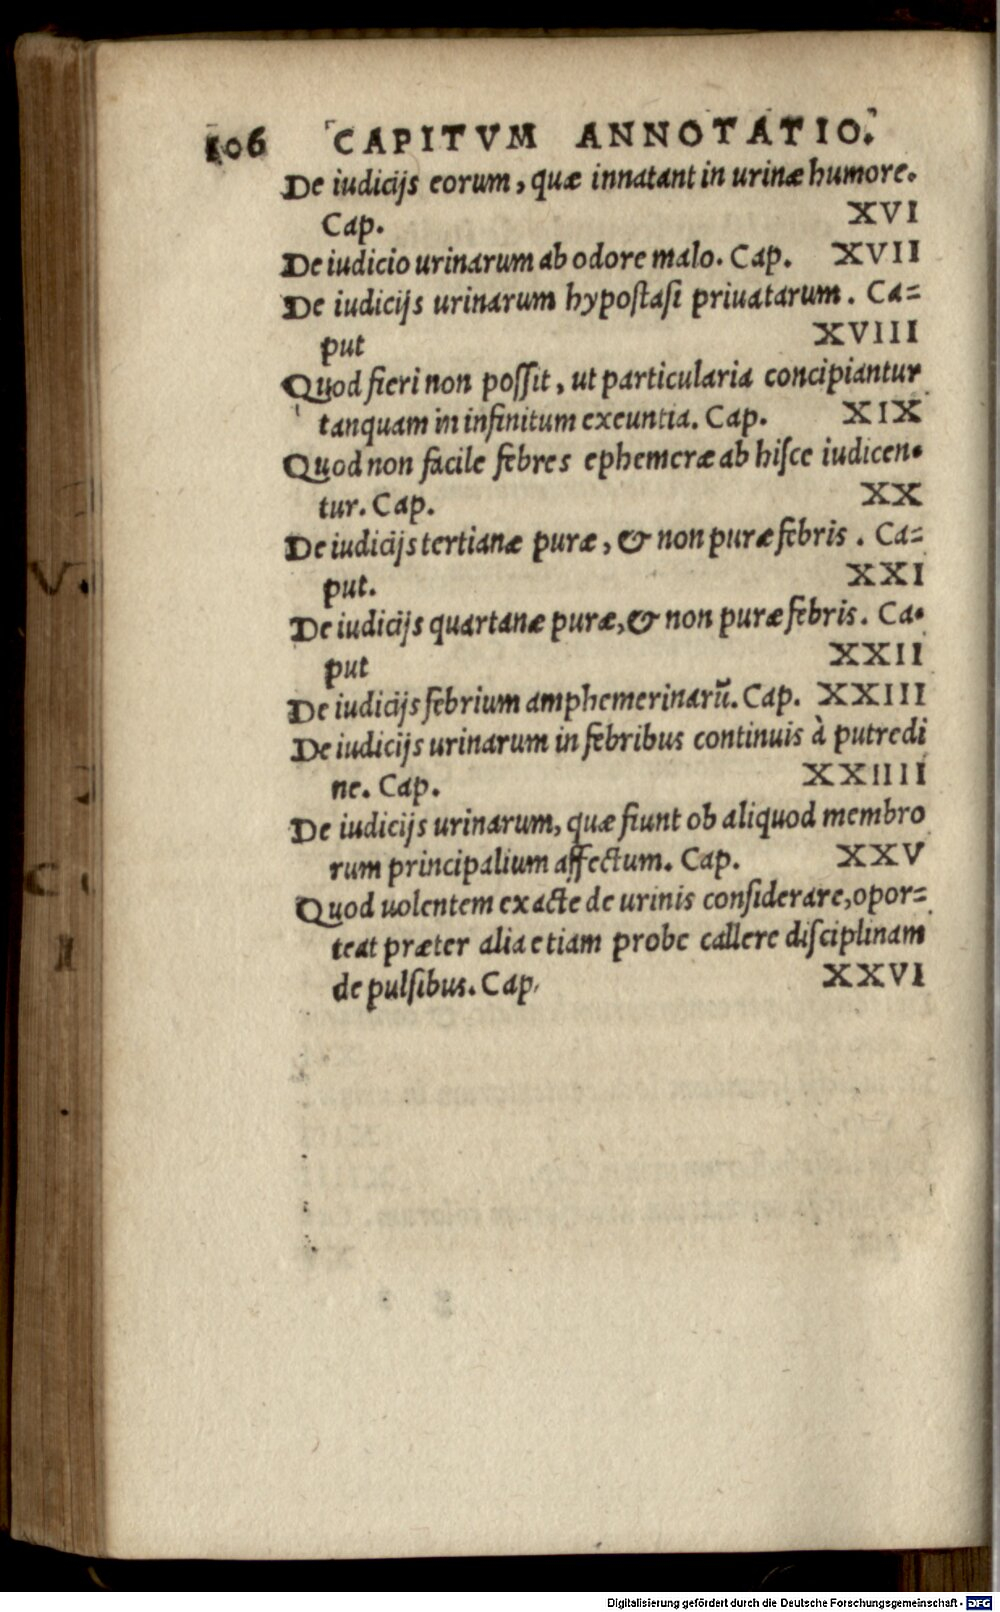 106 CAPITVM ANNOTATIO.
De iudicijs eorum, quæ innatant in urinæ humore.
Cap. XVI
De iudicio urinarum ab odore malo. Cap. XVII
De iudicijs urinarum hypostasi priuatarum. Ca=
put XVIII
Quod fieri non possit, ut particularia concipiantur
tanquam in infinitum exeuntia. Cap. XIX
Quod non facile febres ephemeræ ab hisce iudicen-
tur. Cap. XX
De iudicijs tertianæ puræ, & non puræ febris. Ca=
put. XXI
De iudicijs quartanæ puræ, & non puræ febris. Ca-
put XXII
De iudicijs febrium amphemerinarū. Cap. XXIII
De iudicijs urinarum in febribus continuis à putredi
ne. Cap. XXIIII
De iudicijs urinarum, quæ fiunt ob aliquod membro
rum principalium affectum. Cap. XXV
Quod uolentem exacte de urinis considerare, opor=
teat præter alia etiam probe callere disciplinam
de pulsibus. Cap. XXVI
Digitalisierung gefördert durch die Deutsche Forschungsgemeinschaft - DFG